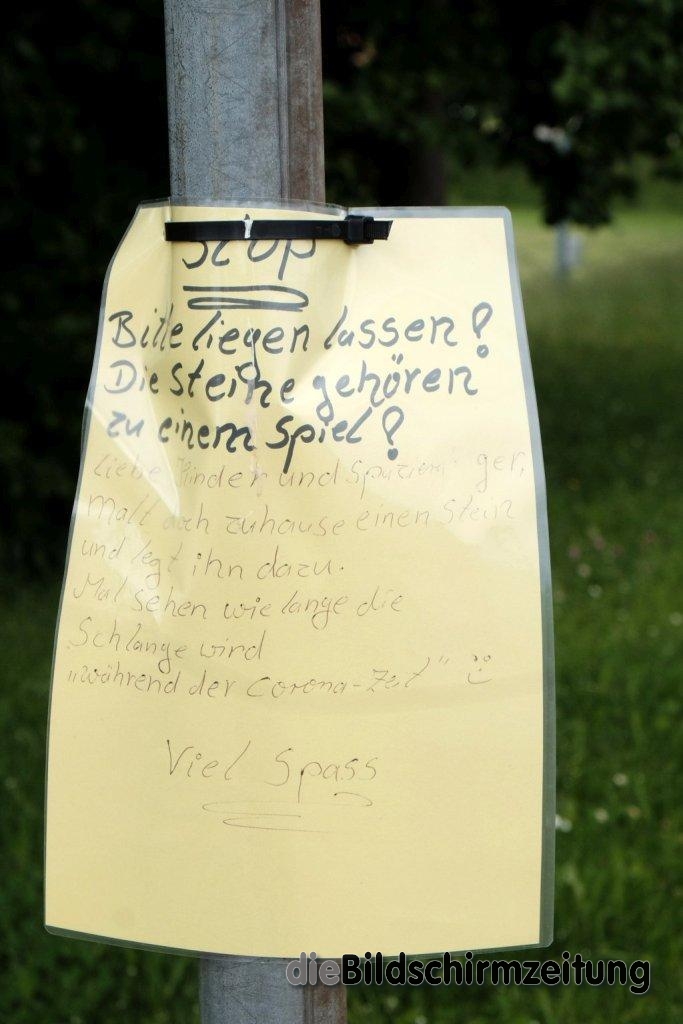 Stop
Bitte liegen lassen!
Die Steine gehören
zu einem Spiel!
Liebe Kinder und Spaziergänger,
Malt doch zuhause einen Stein
und legt ihn dazu.
Mal sehen wie lange die
Schlange wird
"während der Corona-Zeit" :)
Viel Spass
dieBildschirmzeitung